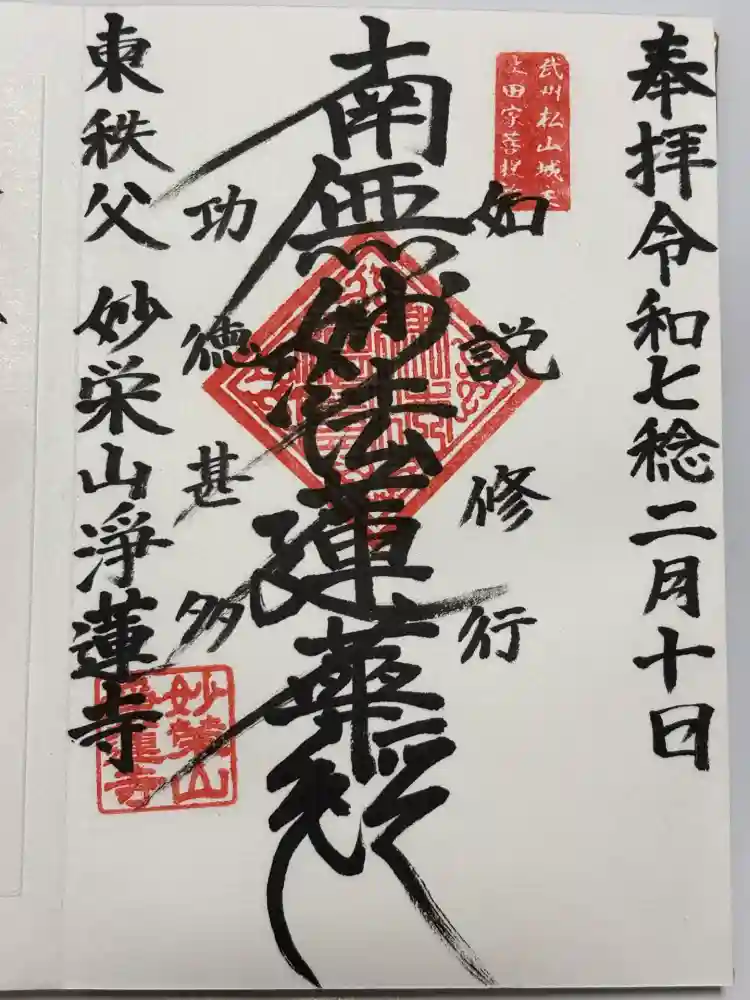 奉拝令和七稔二月十日
武州松山城主
田家菩提
如説修行
南無妙法蓮華経
功徳甚多
東秩父 妙栄山浄蓮寺
妙栄山
浄蓮寺